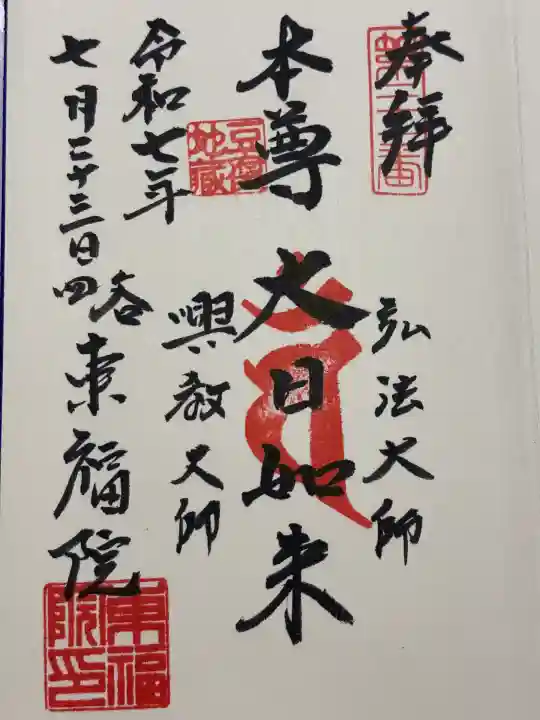 奉拝
弘法大師
本尊 大日如来
興教大師
令和七年
七月二十三日
四谷 東福院
豆腐地蔵
東福院印